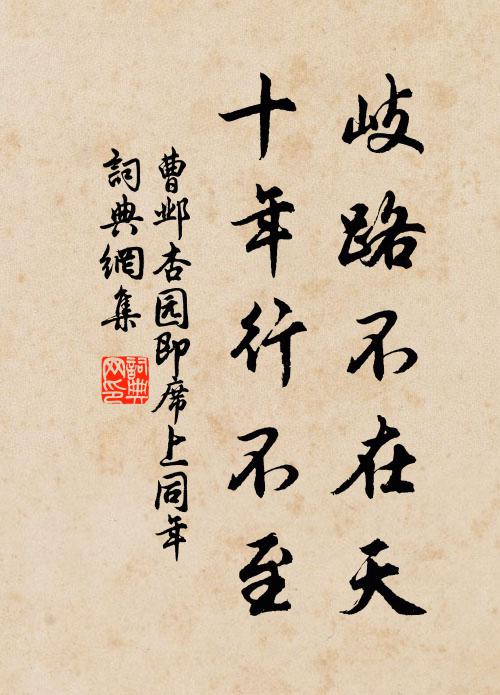 岐路不在天
十年行不至
曹邺杏园即席上同年
詞典網集
詞典网印